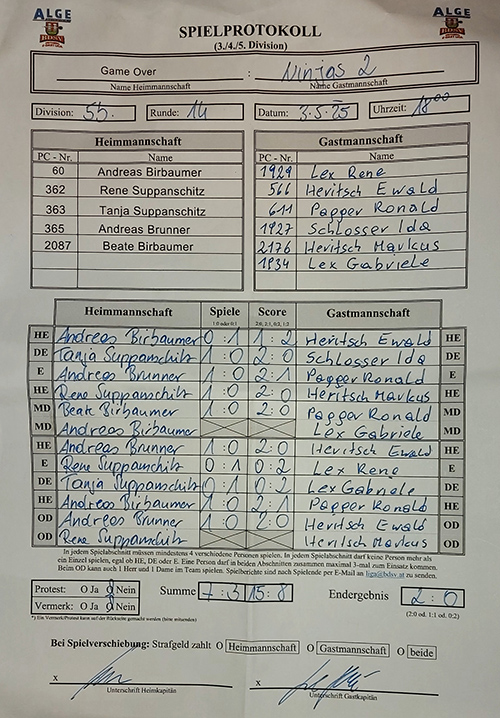 ALGE
BDSV
SPIELPROTOKOLL
ALGE
BDSV
(3./4./5. Division)
Game Over : Ninjas 2
Name Heimmannschaft Name Gastmannschaft
Division: 5b. Runde: 14 Datum: 3.5.25 Uhrzeit: 18:00
Heimmannschaft Gastmannschaft
PC - Nr. Name PC - Nr. Name
60 Andreas Birbaumer 1929 Lex Rene
362 Rene Suppanschitz 566 Heritsch Ewald
363 Tanja Suppanschitz 611 Pagger Ronald
365 Andreas Brunner 1927 Schlosser Ida
2087 Beate Birbaumer 2176 Heritsch Markus
1934 Lex Gabriele
Heimmannschaft Spiele Score Gastmannschaft
1:0 oder 0:1 2:0, 2:1, 0:2, 1:2
HE Andreas Birbaumer 0 : 1 1 : 2 Heritsch Ewald HE
DE Tanja Suppanschitz 1 : 0 2 : 0 Schlosser Ida DE
E Andreas Brunner 1 : 0 2 : 1 Pagger Ronald E
HE Rene Suppanschitz 1 : 0 2 : 0 Heritsch Markus HE
MD Beate Birbaumer 1 : 0 2 : 0 Pagger Ronald MD
MD Andreas Birbaumer Lex Gabriele MD
HE Andreas Brunner 1 : 0 2 : 0 Heritsch Ewald HE
E Rene Suppanschitz 0 : 1 0 : 2 Lex Rene E
DE Tanja Suppanschitz 0 : 1 0 : 2 Lex Gabriele DE
HE Andreas Birbaumer 1 : 0 2 : 1 Pagger Ronald HE
OD Andreas Brunner 1 : 0 2 : 0 Heritsch Ewald OD
OD Rene Suppanschitz Heritsch Markus OD
In jedem Spielabschnitt müssen mindestens 4 verschiedene Personen spielen. In jedem Spielabschnitt darf keine Person mehr als
ein Einzel spielen, egal ob HE, DE oder E. Eine Person darf in beiden Abschnitten zusammen maximal 3-mal zum Einsatz kommen.
Beim OD kann auch 1 Herr und 1 Dame im Team spielen. Spielberichte sind nach Spielende per E-Mail an liga@bdsv.at zu senden.
Protest: O Ja O Nein Summe 7 : 3 15 : 8 Endergebnis 2 : 0
Vermerk: O Ja O Nein (2:0 od. 1:1 od. 0:2)
*) Ein Vermerk/Protest kann auf der Rückseite gemacht werden (bitte mitsenden)
Bei Spielverschiebung: Strafgeld zahlt O Heimmannschaft O Gastmannschaft O beide
x x
Unterschrift Heimkapitän Unterschrift Gastkapitän